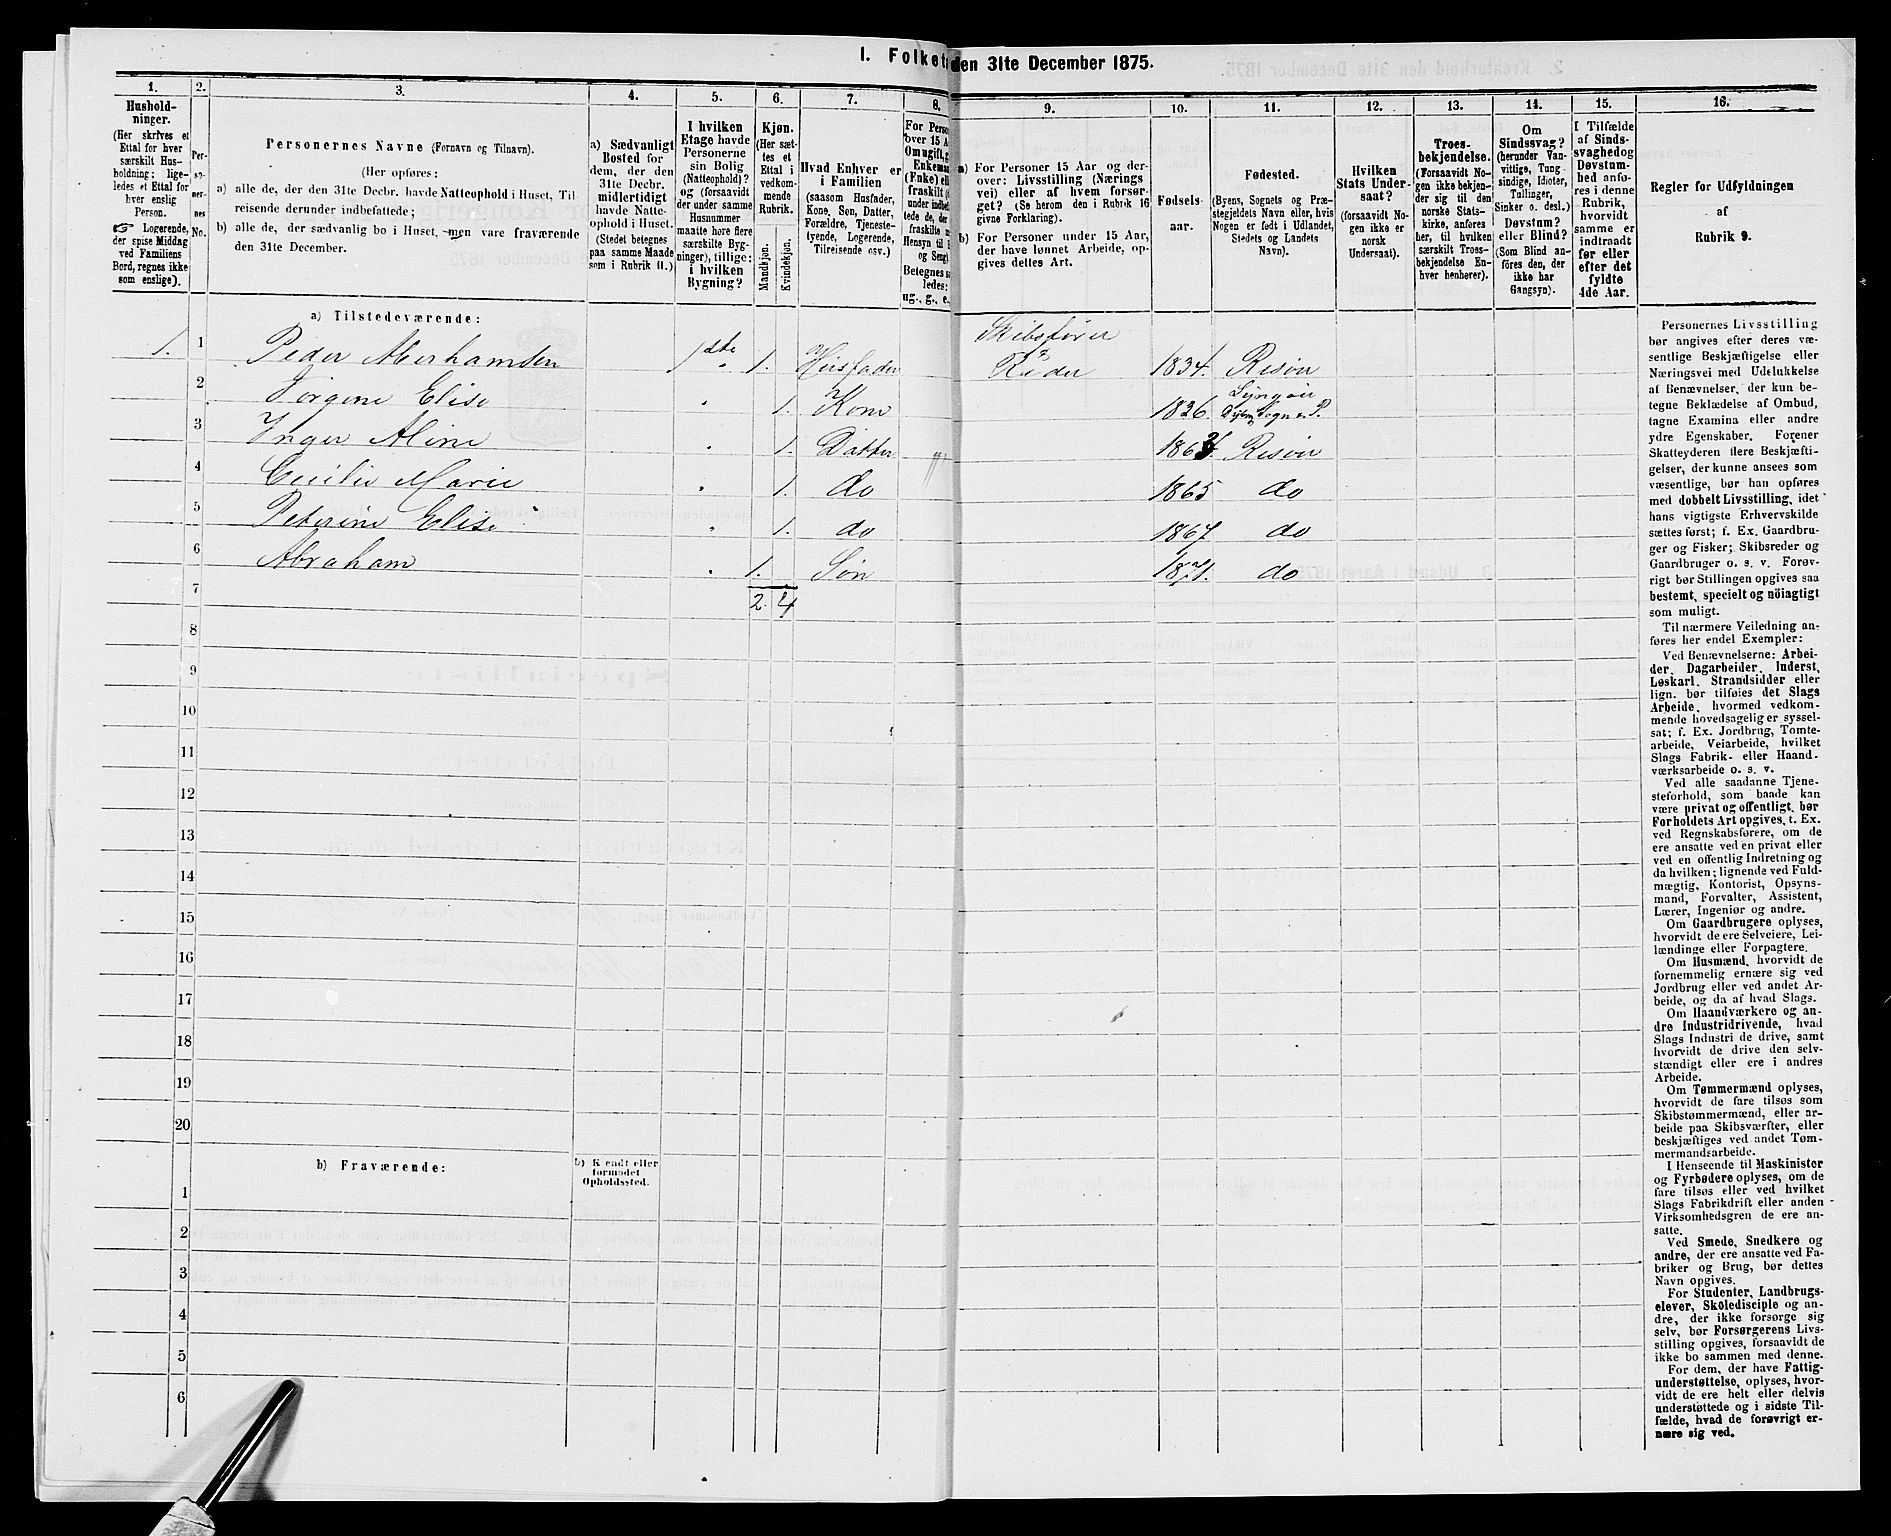 1. Folket
den 31te December 1875.
1.
Hushold-
ninger.
(Her skrives et
Ettal for hver
særskilt Hus-
holdning; lige-
ledes et Ettal for
hver enslig
Person.
Logerende,
der spise Middag
ved Familiens
Bord, regnes ikke
som enslige).
2.
Per-
so-
ner-
nes
No.
3.
Personernes Navne (Fornavn og Tilnavn).
(Her opføres:
a) alle de, der den 31te Decbr. havde Natteophold i Huset, Til-
reisende derunder indbefattede;
b) alle de, der sædvanlig bo i Huset, men vare fraværende
den 31te December.
4.
a) Sædvanligt
Bosted for
dem, der den
31te Decbr.
midlertidigt
havde Natte-
ophold i Huset.
(Stedet betegnes
paa samme Maade
som i Rubrik 11.)
5.
I hvilken
Etage havde
Personerne
sin Bolig
(Natteophold)?
og (forsaavidt
der under samme
Husnummer
maatte høre flere
særskilte Byg-
ninger), tillige:
i hvilken
Bygning?
6.
Kjøn.
(Her sæt-
tes et
Ettal i
vedkom-
mende
Rubrik.
Mandkjøn.
Kvindekjøn.
7.
Hvad Enhver er
i Familien
(saasom Husfader,
Kone, Søn, Datter,
Forældre, Tjeneste-
tyende, Logerende,
Tilreisende osv.)
8.
For Perso
over 15 A
Omugift, g
Enkeman
(Enke) ell
fraskilt
tede de, der
fraskilte
Hensyn til
og Seng).
Betegnes s
ledes:
ug., g., e.
9.
a) For Personer 15 Aar og der-
over: Livsstilling (Nærings
vei) eller af hvem forsør-
get? (Se herom den i Rubrik 16
givne Forklaring).
b) For Personer under 15 Aar,
der have lønnet Arbeide, op-
gives dettes Art.
10.
Fødsels-
aar.
11.
Fødested.
(Byens, Sognets og Præ-
stegjeldets Navn eller, hvis
Nogen er født i Udlandet,
Stedets og Landets
Navn).
12.
Hvilken
Stats Under-
saat?
(forsaavidt No-
gen ikke er
norsk
Undersaat).
13.
Troes-
bekjendelse.
(Forsaavidt No-
gen ikke bekjen-
der sig til den
norske Stats-
kirke, anføres
her, til hvilken
særskilt Troes-
bekjendelse En-
hver henhører).
14.
Om
Sindssvag?
(herunder Van-
vittige, Tung-
sindige, Idioter,
Tullinger,
Sinker o. desl.)
Døvstum?
eller Blind?
(Som Blind an-
føres den, der
ikke har
Gangsyn).
15.
I Tilfælde
af Sinds-
svaghed og
Døvstum-
hed anfø-
res i denne
Rubrik,
hvorvidt
samme er
indtraadt
før eller
efter det
fyldte
4de Aar.
16.
Regler for Udfyldningen
af
Rubrik 9.
a) Tilstedeværende:
1. 1 Peder Aberhamsen 1ste 1. Husfader Skibsfører
Reder 1834. Risør
2 Jørgene Elise " 1. Kone 1826. Lyngøer
Dybv. Sogn & P.
3 Inger Aline " 1. Datter Risør
4 Cecilie Marie " 1. do 1865 do
5 Peterine Elise " 1. do 1867 do
6 Abraham " 1. Søn 1871. do
7 2. 4
8
9
10
11
12
13
14
15
16
17
18
19
20
b) Fraværende:
b) Kjendt eller
formodet
Opholdssted.
1
2
3
4
5
6
Personernes Livsstilling
bør angives efter deres væ-
sentlige Beskjæftigelse eller
Næringsvei med Udelukkelse
af Benævnelser, der kun be-
tegne Beklædelse af Ombud,
tagne Examina eller andre
ydre Egenskaber. Forener
Skatteyderen flere Beskjæfti-
gelser, der kunne ansees som
væsentlige, bør han opføres
med dobbelt Livsstilling, idet
hans vigtigste Erhvervskilde
sættes først; f. Ex. Gaardbru-
ger og Fisker; Skibsreder og
Gaardbruger o. s. v. Forøv-
rigt bør Stillingen opgives saa
bestemt, specielt og nöiagtigt
som muligt.
Til nærmere Veiledning an-
føres her endel Exempler:
Ved Benævnelserne: Arbei-
der, Dagarbeider, Inderst,
Løskarl, Strandsidder eller
lign. bør tilføies det Slags
Arbeide, hvormed vedkom-
mende hovedsagelig er syssel-
sat; f. Ex. Jordbrug, Tomte-
arbeide, Veiarbeide, hvilket
Slags Fabrik- eller Haand-
værksarbeide o. s. v.
Ved alle saadanne Tjene-
steforhold, som baade kan
være privat og offentligt, bør
Forholdets Art opgives, t. Ex.
ved Regnskabsførere, om de
ere ansatte ved en privat eller
ved en offentlig Indretning og
da hvilken; lignende ved Fuld-
mægtig, Kontorist, Opsyns-
mand, Forvalter, Assistent,
Lærer, Ingeniør og andre.
Om Gaardbrugere oplyses,
hvorvidt de ere Selveiere, Lei-
lændinge eller Forpagtere.
Om Husmænd, hvorvidt de
fornemmelig ernære sig ved
Jordbrug eller ved andet Ar-
beide, og da af hvad Slags.
Om Haandværkere og an-
dre Industridrivende, hvad
Slags Industri de drive, samt
hvorvidt de drive den selv-
stændigt eller ere i andres
Arbeide.
Om Tømmermænd oplyses,
hvorvidt de fare tilsøs som
Skibstømmermænd, eller ar-
beide paa Skibsværfter, eller
beskjæftiges ved andet Tøm-
mermandsarbeide.
I Henseende til Maskinister
og Fyrbødere oplyses, om de
fare tilsøs eller ved hvilket
Slags Fabrikdrift eller anden
Virksomhedsgren de ere an-
satte.
Ved Smede, Snedkere og
andre, der ere ansatte ved Fa-
briker og Brug, bør dettes
Navn opgives.
For Studenter, Landbrugs-
elever, Skoledisciple og an-
dre, der ikke forsørge sig
selv, bør Forsørgerens Livs-
stilling opgives, forsaavidt de
ikke bo sammen med denne.
For dem, der have Fattig-
understøttelse, oplyses, hvor-
vidt de ere helt eller delvis
understøttede og i sidste Til-
fælde, hvad de forøvrigt er-
nære sig ved.